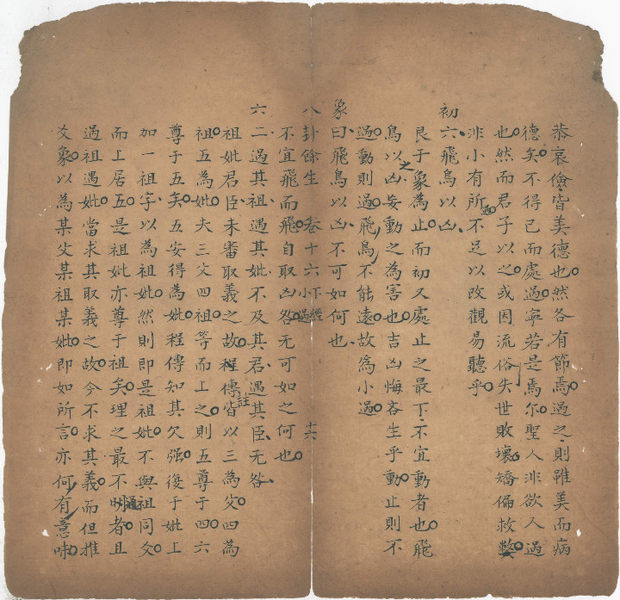 恭哀儉皆美德也然各有節焉過之則雖美而病
德矣不得已而處過寧若是焉尔聖人非欲人過
也然而君子以之或因流俗失世敗壞矯偏救弊
非小有所過不足以改觀易聽乎
初六飛鳥以凶
艮于象為止而初又處止之最下不宜動者也飛
鳥以凶妄動之為害也吉凶悔吝生乎動止則不
過動則過飛鳥不能遠故為小過
象曰飛鳥以凶不可如何也
八卦餘生 卷十六 下經 小過 十六
不宜飛而飛自取凶咎无可如之何也
六二過其祖遇其妣不及其君遇其臣无咎
祖妣君臣未審取義之故程傳註皆以三為父四為
祖五為妣夫三父四祖等而上之則五尊于四六
尊于五矣五安得為妣程傳知其欠強後于妣上
加一祖字以為祖妣然則即是祖妣不與祖同爻
而上居五是祖妣亦尊于祖矣理之最不通者且
過祖遇妣當求其取義之故今不求其義而但推
爻象以為某父某祖某妣即如所言亦何有意味